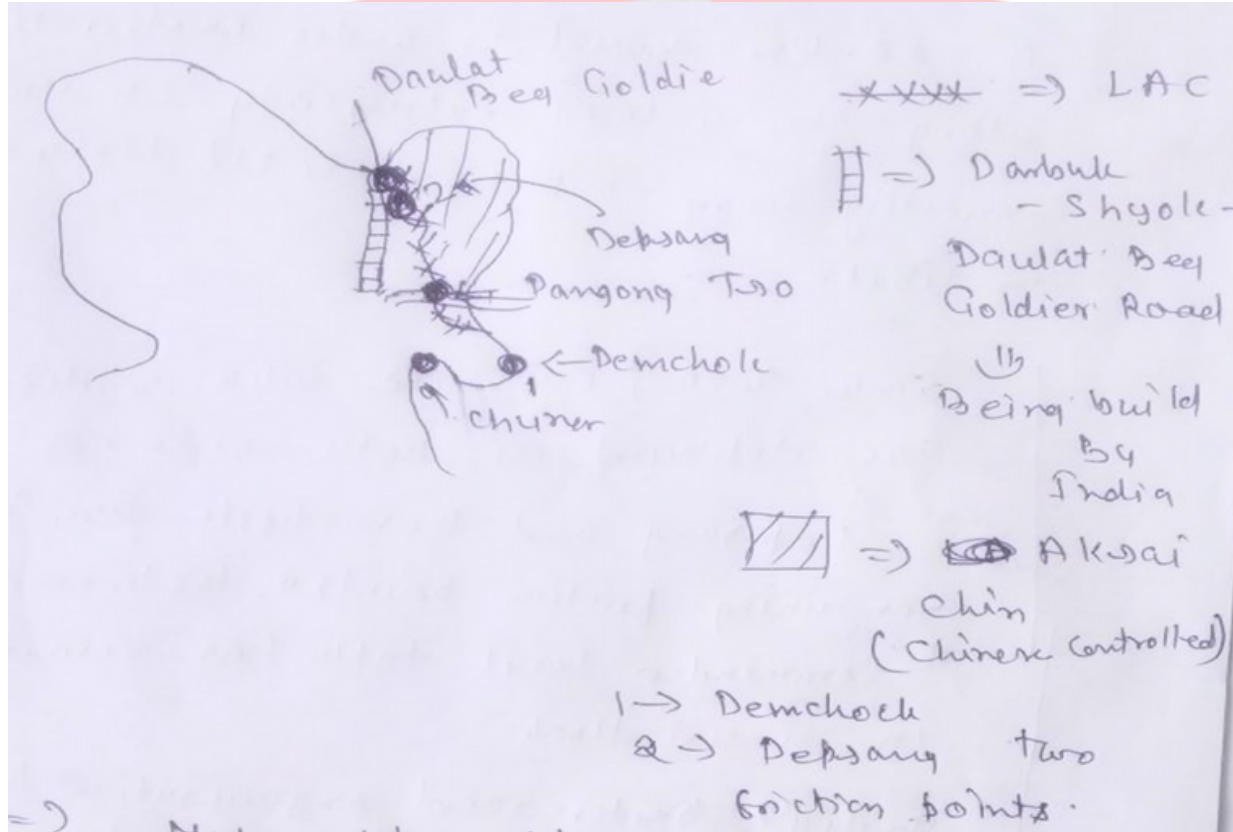 Daulat
Beg Goldie
Depsang
Pangong Tso
← Demchok
1
2
Chumer
=> LAC
=> Darbuk
- Shyok -
Daulat Beg
Goldier Road
Being build
By
India
=> Aksai
Chin
(Chinese Controlled)
1 → Demchock
2 → Depsang two
friction points.
=>